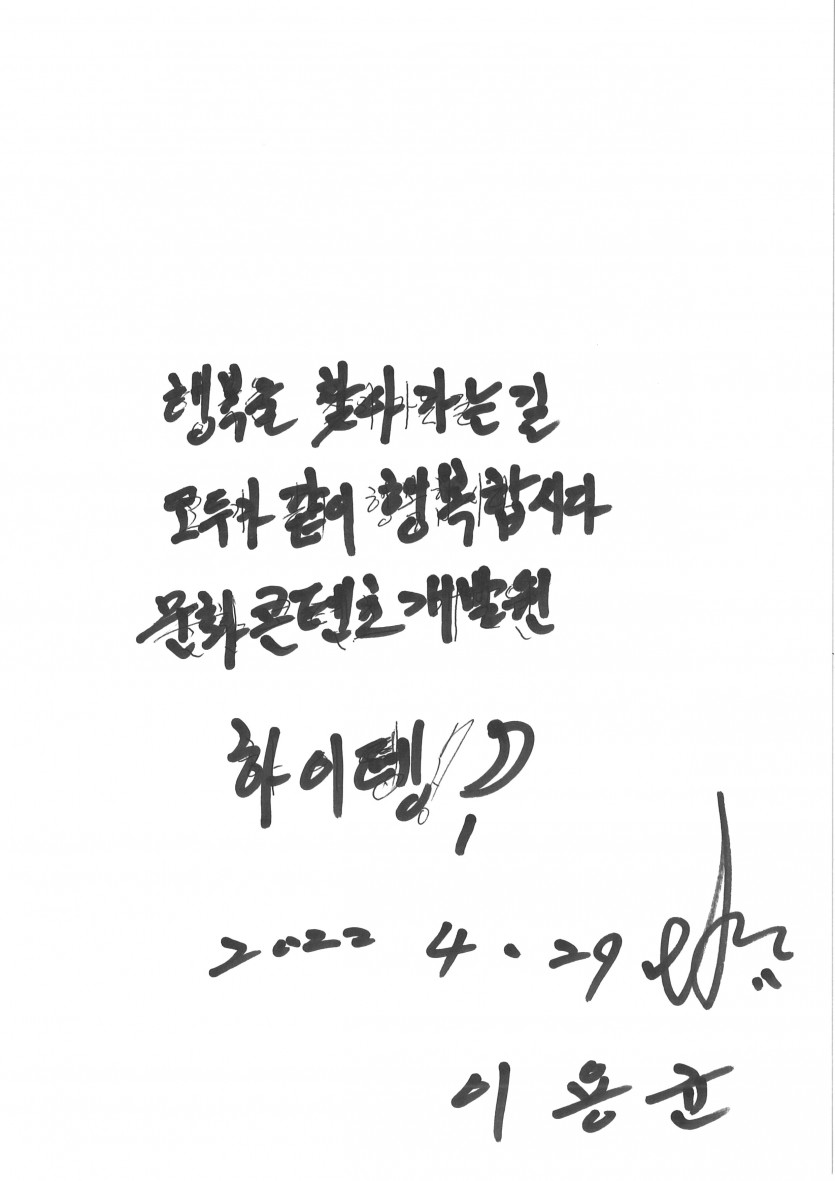 행복을 찾아가는길
모두가 같이 행복합시다
문화콘텐츠개발원
하이텡!
2022 4. 29
이용균